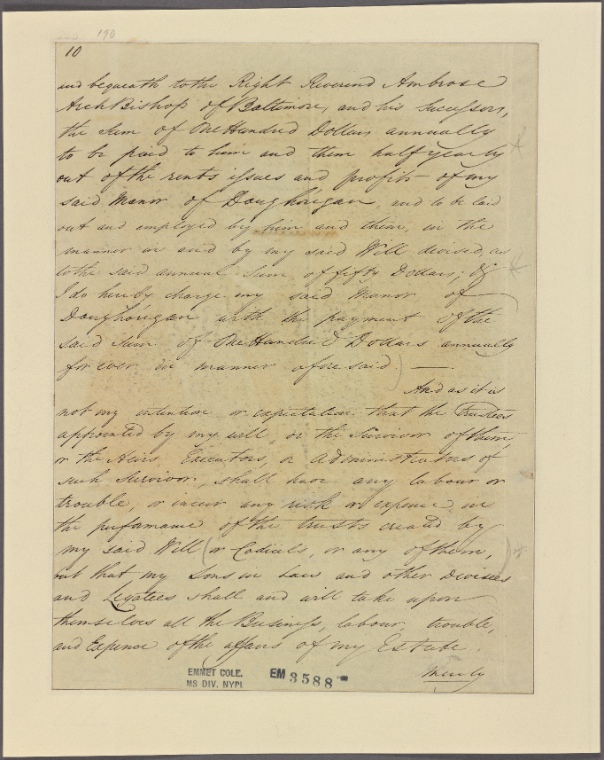 190
10
and bequeath to the Right Reverend Ambrose
ArchBishop of Baltimore, and his Successors,
the Sum of One Hundred Dollars annually
to be paid to him and them half yearly
out of the rents issues and profits of my
said Manor of Doughoregan, and to be laid
out and employed by him and them, in the
manner in and by my said Will devised, as
to the said annual Sum of fifty Dollars; &
I do hereby charge my said Manor of
Doughoregan with the payment of the
said Sum of One Hundred Dollars annually
for ever in manner aforesaid) —
And as it is
not my intention or expectation that the Trustees
appointed by my will, or the Survivor of them,
or the Heirs Executors, or administrators of
such Survivor, shall have any labour or
trouble, or incur any risk or expence, in
the performance of the trusts created by
my said Will (or Codicils, or any of them,)
but that my Sons in Law and other Devisees
and Legatees shall and will take upon
themselves all the Business, labour, trouble,
and Expence of the affairs of my Estate.
Merely
EMMET COLL.
MS DIV. NYPL
EM 3588